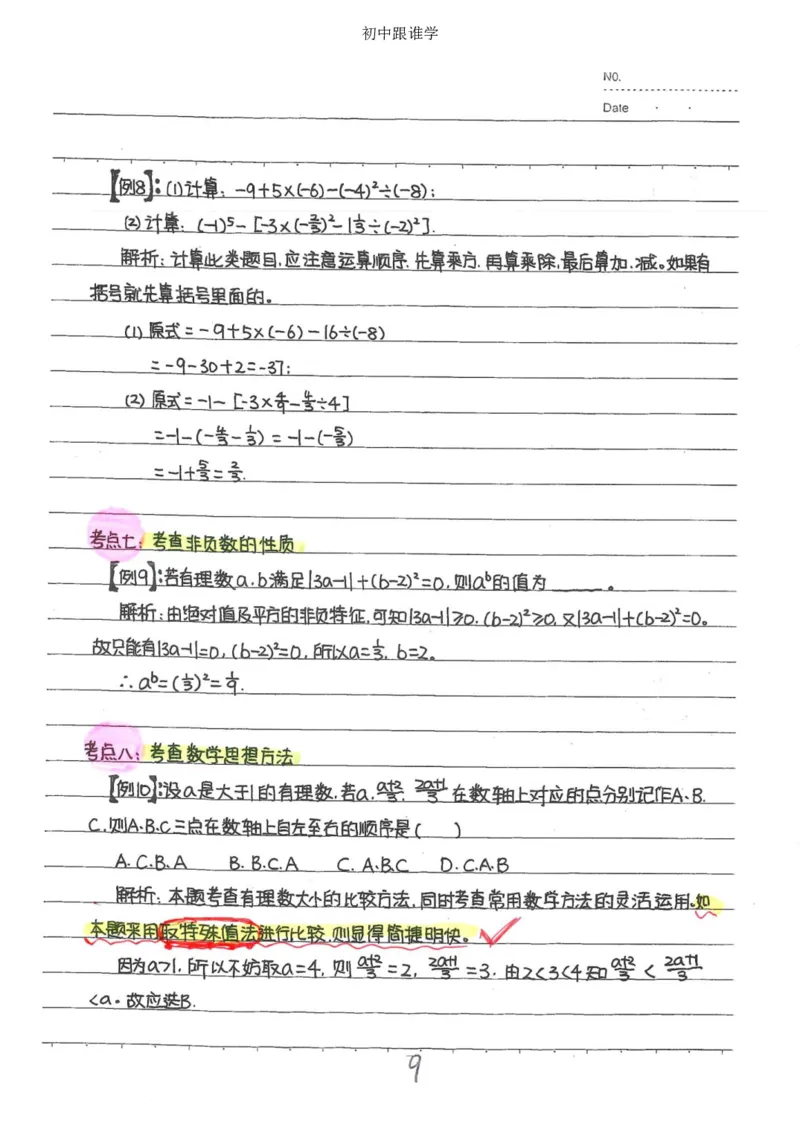 初中跟谁学
NO.
Date · ·
【例8】:(1)计算: -9+5×(-6)-(-4)²÷(-8);
(2)计算: (-1)⁵-[-3×(-2/3)²-1 1/3÷(-2)²].
解析:计算此类题目,应注意运算顺序.先算乘方.再算乘除,最后算加.减。如果有
括号就先算括号里面的。
(1) 原式=-9+5×(-6)-16÷(-8)
=-9-30+2=-37;
(2) 原式=-1-[-3×4/9-4/3÷4]
=-1-(-4/3-1/3)=-1-(-5/3)
=-1+5/3=2/3.
考点七:考查非负数的性质
【例9】:若有理数a.b满足|3a-1|+(b-2)²=0.则aᵇ的值为____。
解析:由绝对值及平方的非负特征,可知|3a-1|≥0.(b-2)²≥0,又|3a-1|+(b-2)²=0。
故只能有|3a-1|=0,(b-2)²=0,所以a=1/3. b=2。
∴aᵇ=(1/3)²=1/9.
考点八:考查数学思想方法
【例10】:设a是大于1的有理数.若a. a+2/3. 2a+1/3 在数轴上对应的点分别记作A、B.
C.则A.B.C三点在数轴上自左至右的顺序是( )
A. C.B.A B. B.C.A C. A.B.C D. C.A.B
解析:本题考查有理数大小的比较方法,同时考查常用数学方法的灵活运用。如
本题采用取“特殊值法”进行比较,则显得简捷明快。
因为a>1.所以不妨取a=4,则 a+2/3=2, 2a+1/3=3. 由2<3<4知 a+2/3 < 2a+1/3
<a。故应选B.
9